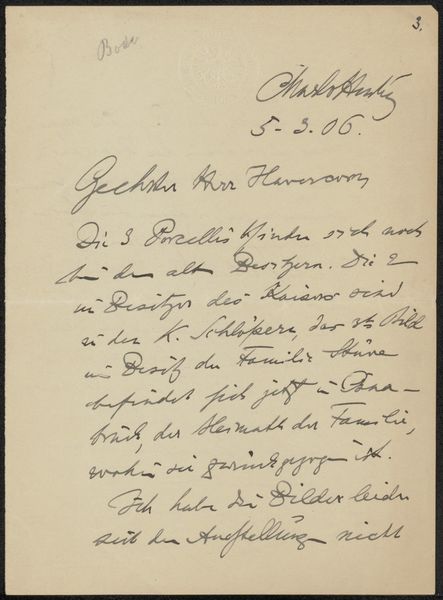 3.
Bode
Charlottenbg
5-3.06.
Geehrter Herr Havercorn
Die 3 Porcellis finden sich noch
bei den alt Besitzern. Die 2
im Besitze des Kaisers sind
in den K. Schlößern, das 3te Bild
im Besitz der Familie Stüve
befindet sich jetzt in Osna-
brück, der Heimath der Familie,
wohin sie zurückgezogen ist.
Ich habe die Bilder leider
seit der Ausstellung nicht